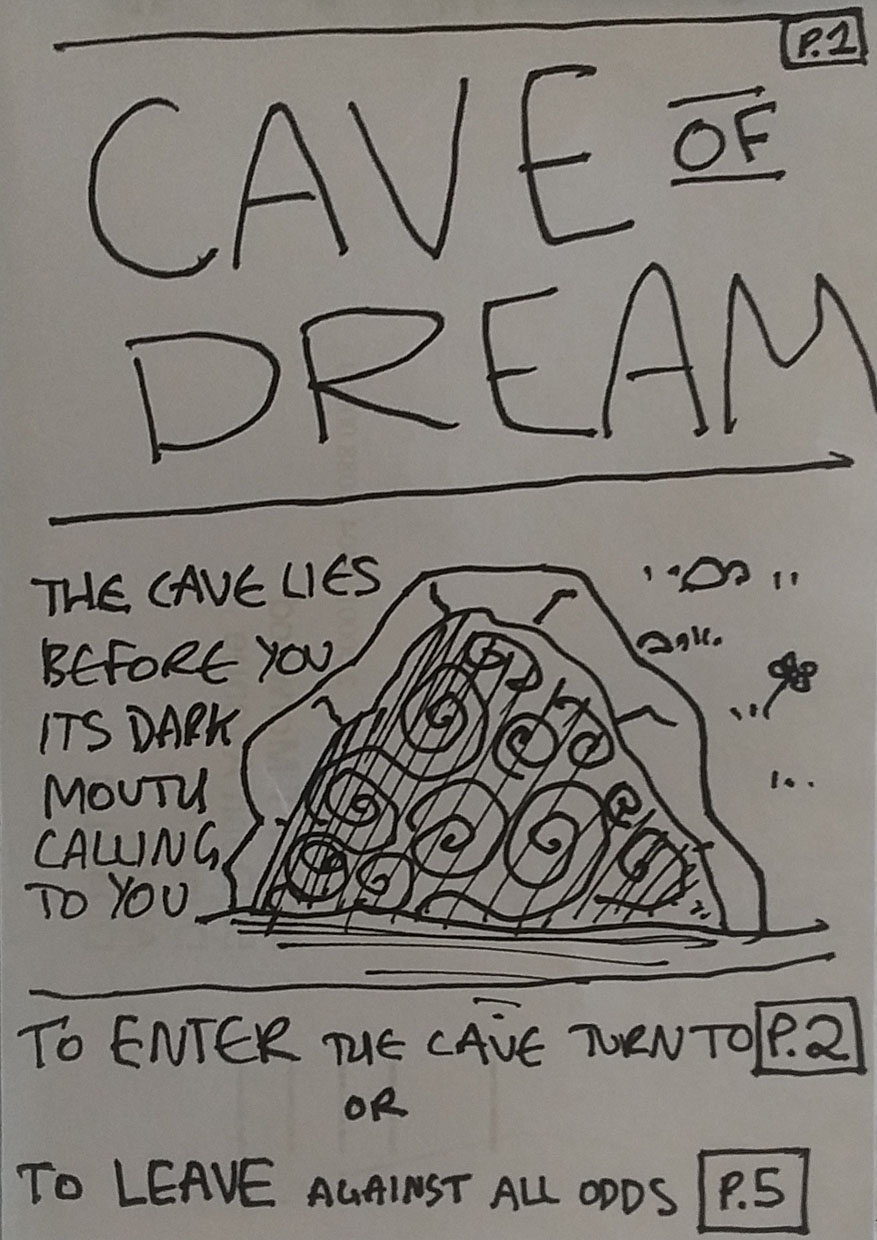 P.1
CAVE OF
DREAM
THE CAVE LIES
BEFORE YOU
ITS DARK
MOUTH
CALLING
TO YOU
TO ENTER THE CAVE TURN TO P.2
OR
TO LEAVE AGAINST ALL ODDS P.5